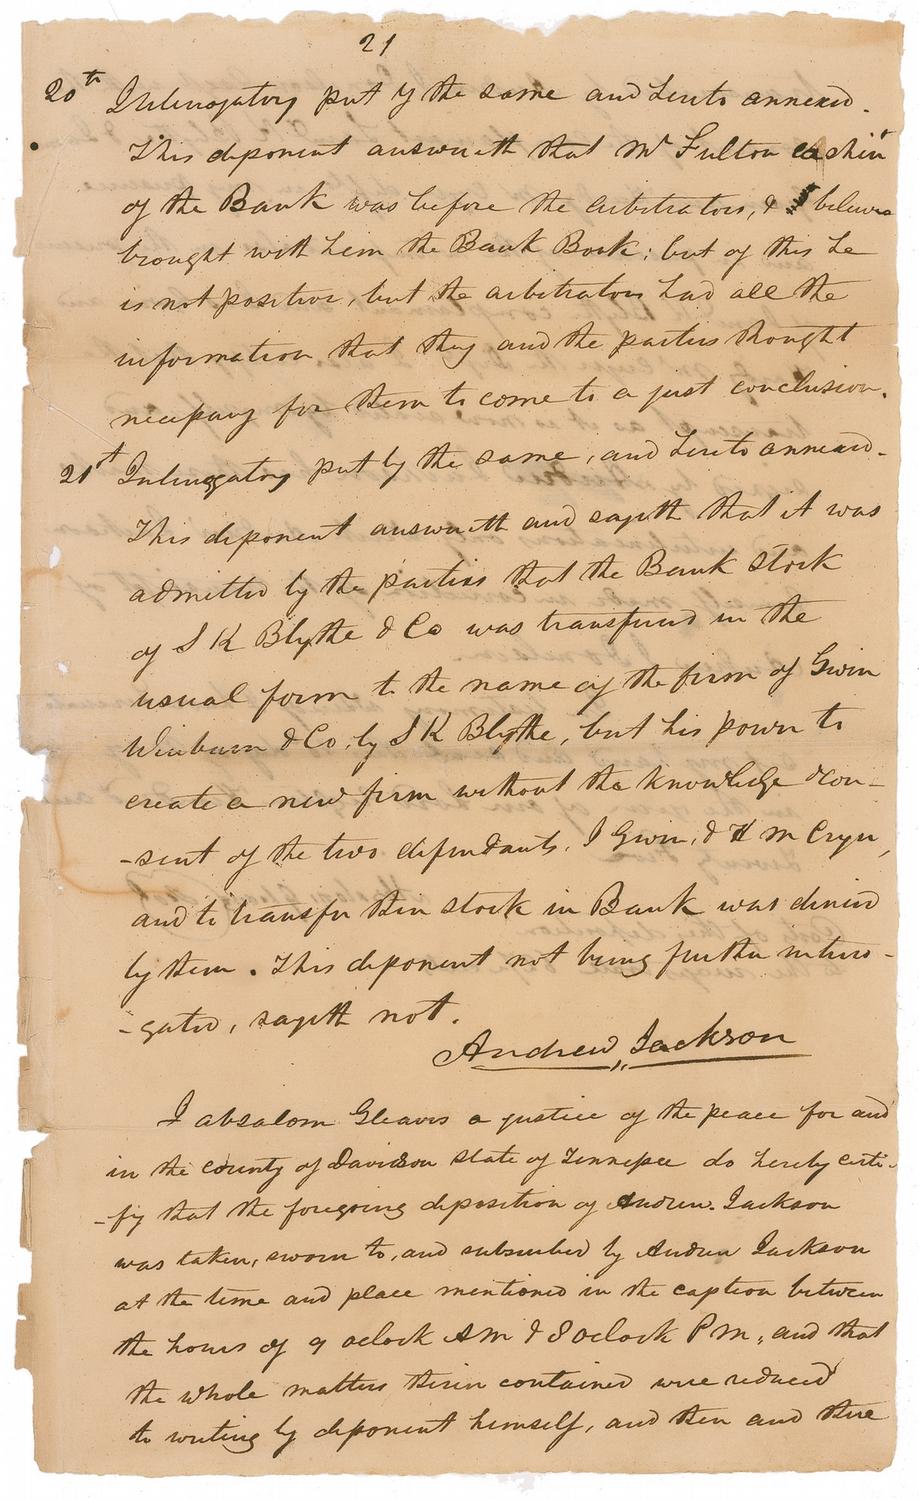 21
20th Interrogatory put by the same and hereto annexed.
This deponent answereth that Mr Fulton cashier
of the Bank was before the arbitrators, & believes
brought with him the Bank Book; but of this he
is not positive, but the arbitrators had all the
information that they and the parties thought
necessary for them to come to a just conclusion.
21st Interrogatory put by the same, and hereto annexed.
This deponent answereth and sayeth that it was
admitted by the parties that the Bank stock
of S K Blythe & Co was transferred in the
usual form to the name of the firm of Gwin
Winburn & Co, by S K Blythe, but his power to
create a new firm without the knowledge & con-
-sent of the two defendants, J Gwin, & H M Cryer,
and to transfer their stock in Bank was denied
by them. This deponent not being further interro-
-gated, sayeth not.
Andrew Jackson
I absalom Gleaves a justice of the peace for and
in the county of Davidson state of Tennessee do hereby certi-
-fy that the foregoing deposition of Andrew Jackson
was taken, sworn to, and subscribed by Andrew Jackson
at the time and place mentioned in the caption between
the hours of 9 oclock AM & 8 oclock PM, and that
the whole matters therein contained were reduced
to writing by deponent himself, and then and there